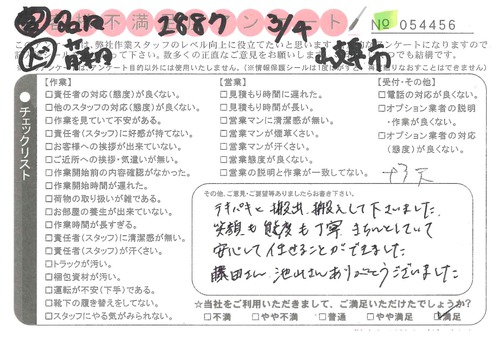 客様不満足アンケート
2887 3/4
№ 054456
藤田
小樽市
は、弊社作業スタッフのレベル向上に役立てたいと思います
アンケートになりますので
さい。アンケート目的以外には使用いたしません。(※情報保護シールは1度はがすと、再度貼りなおすことはできません)
チェックリスト
【作業】
□責任者の対応(態度)が良くない。
□他のスタッフの対応(態度)が良くない。
□作業を見ていて不安がある。
□責任者(スタッフ)に好感が持てない。
□お客様への挨拶が出来ていない。
□ご近所への挨拶・気遣いが無い。
□作業開始前の内容確認がなかった。
□作業開始時間が遅れた。
□荷物の取り扱いが雑である。
□お部屋の養生が出来ていない。
□作業時間が長すぎる。
□責任者(スタッフ)に清潔感が無い。
□責任者(スタッフ)が汗くさい。
□トラックが汚い。
□梱包資材が汚い。
□運転が不安(下手)である。
□靴下の履き替えをしてない。
□スタッフにやる気がみられない。
【営業】
□見積もり時間に遅れた。
□見積もり時間が長い。
□営業マンに清潔感が無い。
□営業マンが煙草くさい。
□営業マンが汗くさい。
□営業態度が良くない。
□営業の説明と作業が一致してない。
【受付・その他】
□電話の対応が良くない。
□オプション業者の説明
・作業が良くない。
□オプション業者の対応
(態度)が良くない。
その他、ご意見・ご要望等ありましたらお書き下さい。
テキパキと搬出、搬入して下さいました。
笑顔も態度も丁寧、きちんとしていて
安心して任せることができました
藤田さん、池山さんありがとうございました
☆当社をご利用いただきまして、ご満足いただけたでしょうか?
□不満 □やや不満 □普通 □やや満足 □満足